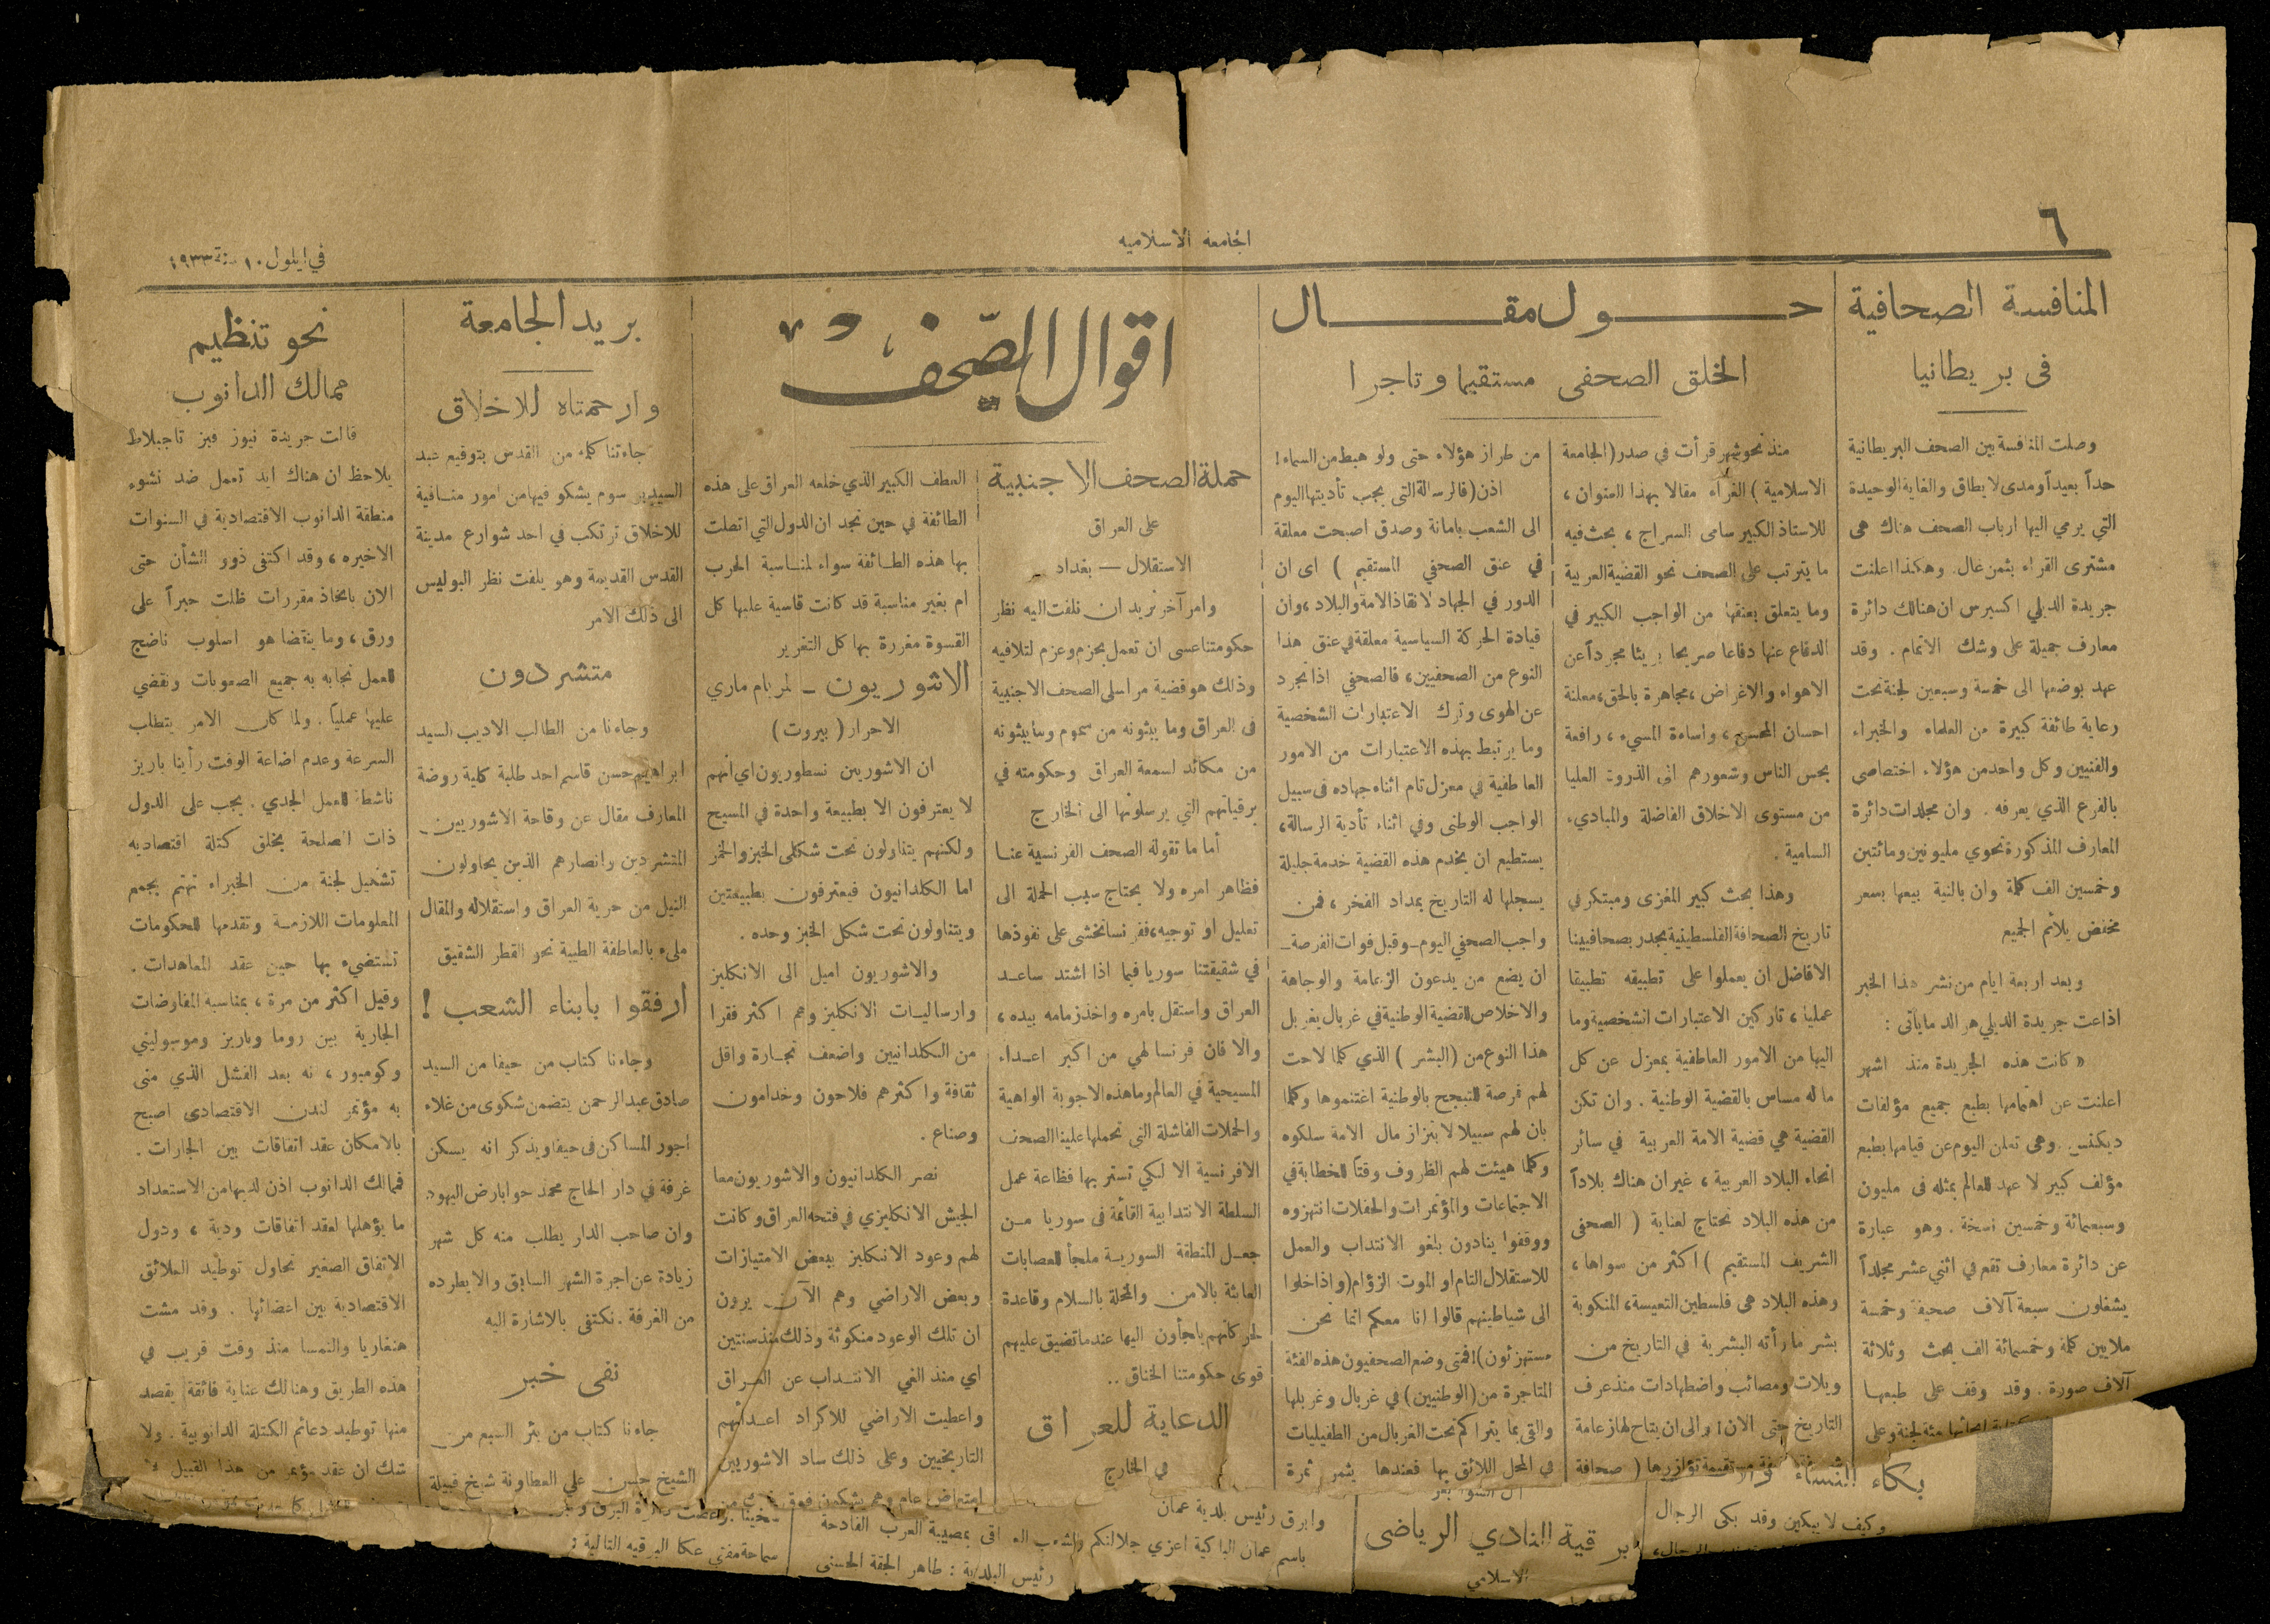 ٦
الجامعة الاسلامية
في ايلول ١٠ سنة ١٩٣٣
المنافسة الصحافية
فى بريطانيا
وصلت المنافسة بين الصحف البريطانية
حداً بعيداً ومدى لا يطاق والغاية الوحيدة
التي يرمي اليها ارباب الصحف هناك هى
مشترى القراء بثمن غال. وهكذا اعلنت
جريدة الديلي اكسبرس ان هنالك دائرة
معارف جميلة على وشك الاتمام . وقد
عهد بوضعها الى خمسة وسبعين لجنة تحت
رعاية طائفة كبيرة من العلماء والخبراء
والفنيين وكل واحد من هؤلاء اختصاصى
بالفرع الذي يعرفه . وان مجلدات دائرة
المعارف المذكورة تحوي مليونين ومائتين
وخمسين الف كلمة وان بالنية بيعها بسعر
مخفض يلائم الجميع
وبعد اربعة ايام من نشر هذا الخبر
اذاعت جريدة الديلي هرالد ما يأتى :
« كانت هذه الجريدة منذ اشهر
اعلنت عن اهتمامها بطبع جميع مؤلفات
ديكنس . وهى تعلن اليوم عن قيامها بطبع
مؤلف كبير لا عهد للعالم بمثله فى مليون
وسبعمائة وخمسين نسخة . وهو عبارة
عن دائرة معارف تقع في اثني عشر مجلداً
يشغلون سبعة آلاف صحيفة وخمسة
ملايين كلمة وخمسمائة الف بحث وثلاثة
آلاف صورة . وقد وقف على طبعها
ابحاثها مئة لجنة وعلى
حول مقال
الخلق الصحفى مستقيما وتاجرا
منذ نحو شهر قرأت في صدر (الجامعة
الاسلامية) الغراء مقالا بهذا العنوان ،
للاستاذ الكبير سامى السراج ، بحث فيه
ما يترتب على الصحف نحو القضية العربية
وما يتعلق بعنقها من الواجب الكبير في
الدفاع عنها دفاعا صريحا بريئا مجرداً عن
الاهواء والاغراض ، مجاهرة بالحق ، معلنة
احسان المحسن ، واساءة المسيء ، رافعة
بحس الناس وشعورهم الى الذروة العليا
من مستوى الاخلاق الفاضلة والمباديء
السامية .
وهذا بحث كبير المغزى ومبتكر في
تاريخ الصحافة الفلسطينية يجدر بصحافيينا
الافاضل ان يعملوا على تطبيقه تطبيقا
عمليا ، تاركين الاعتبارات الشخصية وما
اليها من الامور العاطفية بمعزل عن كل
ما له مساس بالقضية الوطنية . وان تكن
القضية هي قضية الامة العربية في سائر
انحاء البلاد العربية ، غير ان هناك بلاداً
من هذه البلاد تحتاج لعناية ( الصحفى
الشريف المستقيم ) اكثر من سواها ،
وهذه البلاد هى فلسطين التعيسة ، المنكوبة
بشر ما رأته البشرية في التاريخ من
ويلات ومصائب واضطهادات منذ عرف
التاريخ حتى الان ! والى ان يتاح لها زعامة
مستقيمة تؤازرها ( صحافة
من طراز هؤلاء حتى ولو هبط من السماء !
اذن (فالرسالة التى يجب تأديتها اليوم
الى الشعب بامانة وصدق اصبحت معلقة
في عنق الصحفي المستقيم ) اى ان
الدور في الجهاد لانقاذ الامة والبلاد ، وان
قيادة الحركة السياسية معلقة في عنق هذا
النوع من الصحفيين ، فالصحفي اذا تجرد
عن الهوى وترك الاعتبارات الشخصية
وما يرتبط بهذه الاعتبارات من الامور
العاطفية في معزل تام اثناء جهاده فى سبيل
الواجب الوطنى وفي اثناء تأدية الرسالة ،
يستطيع ان يخدم هذه القضية خدمة جليلة
يسجلها له التاريخ بمداد الفخر ، فمن
واجب الصحفي اليوم - وقبل فوات الفرصة -
ان يضع من يدعون الزعامة والوجاهة
والاخلاص للقضية الوطنية في غربال يغربل
هذا النوع من (البشر ) الذي كلما لاحت
لهم فرصة للتبجح بالوطنية اغتنموها وكلما
بان لهم سبيلا لابتزاز مال الامة سلكوه
وكلما هيئت لهم الظروف وقتاً للخطابة في
الاجتماعات والمؤتمرات والحفلات انتهزوه
ووقفوا ينادون بلغو الانتداب والعمل
للاستقلال التام او الموت الزؤام (واذا خلوا
الى شياطينهم قالوا انا معكم انما نحن
مستهزئون) ! فمتى وضع الصحفيون هذه الفئة
المتاجرة من (الوطنيين) في غربال وغربلها
والقى بما يتراكم تحت الغربال من الطفيليات
في المحل اللائق بها فعندها يثمر ثمرة
اقوال الصحف
حملة الصحف الاجنبية
على العراق
الاستقلال — بغداد
وامر آخر نريد ان نلفت اليه نظر
حكومتنا عسى ان تعمل بحزم وعزم لتلافيه
وذلك هو قضية مراسلى الصحف الاجنبية
فى العراق وما يبثونه من سموم وما يبثونه
من مكائد لسمعة العراق وحكومته في
برقياتهم التي يرسلونها الى الخارج
أما ما تقوله الصحف الفرنسية عنا
فظاهر امره ولا يحتاج سبب الحملة الى
تعليل او توجيه ، ففرنسا تخشى على نفوذها
في شقيقتنا سوريا فيما اذا اشتد ساعد
العراق واستقل بامره واخذ زمامه بيده ،
والا فان فرنسا لهي من اكبر اعداء
المسيحية في العالم وما هذه الاجوبة الواهية
والحملات الفاشلة التى تحملها علينا الصحف
الافرنسية الا لكي تستر بها فظاعة عمل
السلطة الانتدابية القائمة فى سوريا من
جعل المنطقة السورية ملجأ للعصابات
العابثة بالامن والمخلة بالسلام وقاعدة
لحركاتهم يلجأون اليها عندما تضيق عليهم
قوى حكومتنا الخناق ..
الدعاية للعراق
في الخارج
العطف الكبير الذي خلعه العراق على هذه
الطائفة في حين نجد ان الدول التي اتصلت
بها هذه الطائفة سواء لمناسبة الحرب
ام بغير مناسبة قد كانت قاسية عليها كل
القسوة مغررة بها كل التغرير
الاشوريون - لمريام ماري
الاحرار ( بيروت )
ان الاشوريين نسطوريون اي انهم
لا يعترفون الا بطبيعة واحدة في المسيح
ولكنهم يتناولون تحت شكلى الخبز والخمر
اما الكلدانيون فيعترفون بطبيعتين
ويتناولون تحت شكل الخبز وحده .
والاشوريون اميل الى الانكليز
وارساليات الانكليز وهم اكثر فقرا
من الكلدانيين واضعف تجارة واقل
ثقافة واكثرهم فلاحون وخدامون
وصناع .
نصر الكلدانيون والاشوريون معا
الجيش الانكليزي في فتحه العراق وكانت
لهم وعود الانكليز ببعض الامتيازات
وبعض الاراضي وهم الآن يرون
ان تلك الوعود منكوثة وذلك منذ سنتين
اي منذ الغي الانتداب عن العراق
واعطيت الاراضي للاكراد اعدائهم
التاريخيين وعلى ذلك ساد الاشوريين
امتعاض عام وهم يشكون فوق
بريد الجامعة
وارحمتاه للاخلاق
جاءتنا كلمة من القدس بتوقيع عبد
السيد بر سوم يشكو فيها من امور منافية
للاخلاق ترتكب في احد شوارع مدينة
القدس القديمة وهو يلفت نظر البوليس
الى ذلك الامر
متشردون
وجاءنا من الطالب الاديب السيد
ابراهيم حسن قاسم احد طلبة كلية روضة
المعارف مقال عن وقاحة الاشوريين
المتشردين وانصارهم الذين يحاولون
النيل من حرية العراق واستقلاله والمقال
مليء بالعاطفة الطيبة نحو القطر الشقيق
ارفقوا بابناء الشعب !
وجاءنا كتاب من حيفا من السيد
صادق عبد الرحمن يتضمن شكوى من غلاء
اجور المساكن فى حيفا ويذكر انه يسكن
غرفة في دار الحاج محمد حوا بارض اليهود
وان صاحب الدار يطلب منه كل شهر
زيادة عن اجرة الشهر السابق والا يطرده
من الغرفة . نكتفى بالاشارة اليه
نفى خبر
جاءنا كتاب من بئر السبع من
الشيخ حسن علي العطاونة شيخ قبيلة
نحو تنظيم
ممالك الدانوب
قالت جريدة نيوز فينر تاجبلاط
يلاحظ ان هناك ايد تعمل ضد نشوء
منطقة الدانوب الاقتصادية في السنوات
الاخيره ، وقد اكتفى ذوو الشأن حتى
الان باتخاذ مقررات ظلت حبراً على
ورق ، وما ينقضا هو اسلوب ناضج
للعمل نجابه به جميع الصعوبات ونقضي
عليها عمليا . ولما كان الامر يتطلب
السرعة وعدم اضاعة الوقت رأينا باريز
ناشطة للعمل الجدي . يجب على الدول
ذات المصلحة بخلق كتلة اقتصاديه
تشكيل لجنة من الخبراء تهتم بجمع
المعلومات اللازمة وتقدمها للحكومات
تستضيء بها حين عقد المعاهدات .
وقيل اكثر من مرة ، بمناسبة المفاوضات
الجارية بين روما وباريز وموسوليني
وكومبور ، انه بعد الفشل الذي منى
به مؤتمر لندن الاقتصادى اصبح
بالامكان عقد اتفاقات بين الجارات .
فممالك الدانوب اذن لديها من الاستعداد
ما يؤهلها لعقد اتفاقات ودية ، ودول
الاتفاق الصغير تحاول توطيد العلائق
الاقتصادية بين اعضائها . وقد مشت
هنغاريا والنمسا منذ وقت قريب في
هذه الطريق وهنالك عناية فائقة يقصد
منها توطيد دعائم الكتلة الدانوبية . ولا
شك ان عقد مؤتمر من هذا القبيل
بكاء النساء
وكيف لا يبكين وقد بكى الرجال
برقية النادي الرياضى
الاسلامي
وابرق رئيس بلدية عمان
باسم عمان الباكية اعزي جلالتكم والشعب العراقى بمصيبة العرب الفادحة
رئيس البلدية : طاهر الجقة الحسنى
سماحة مفتي عكا البرقيه التالية :